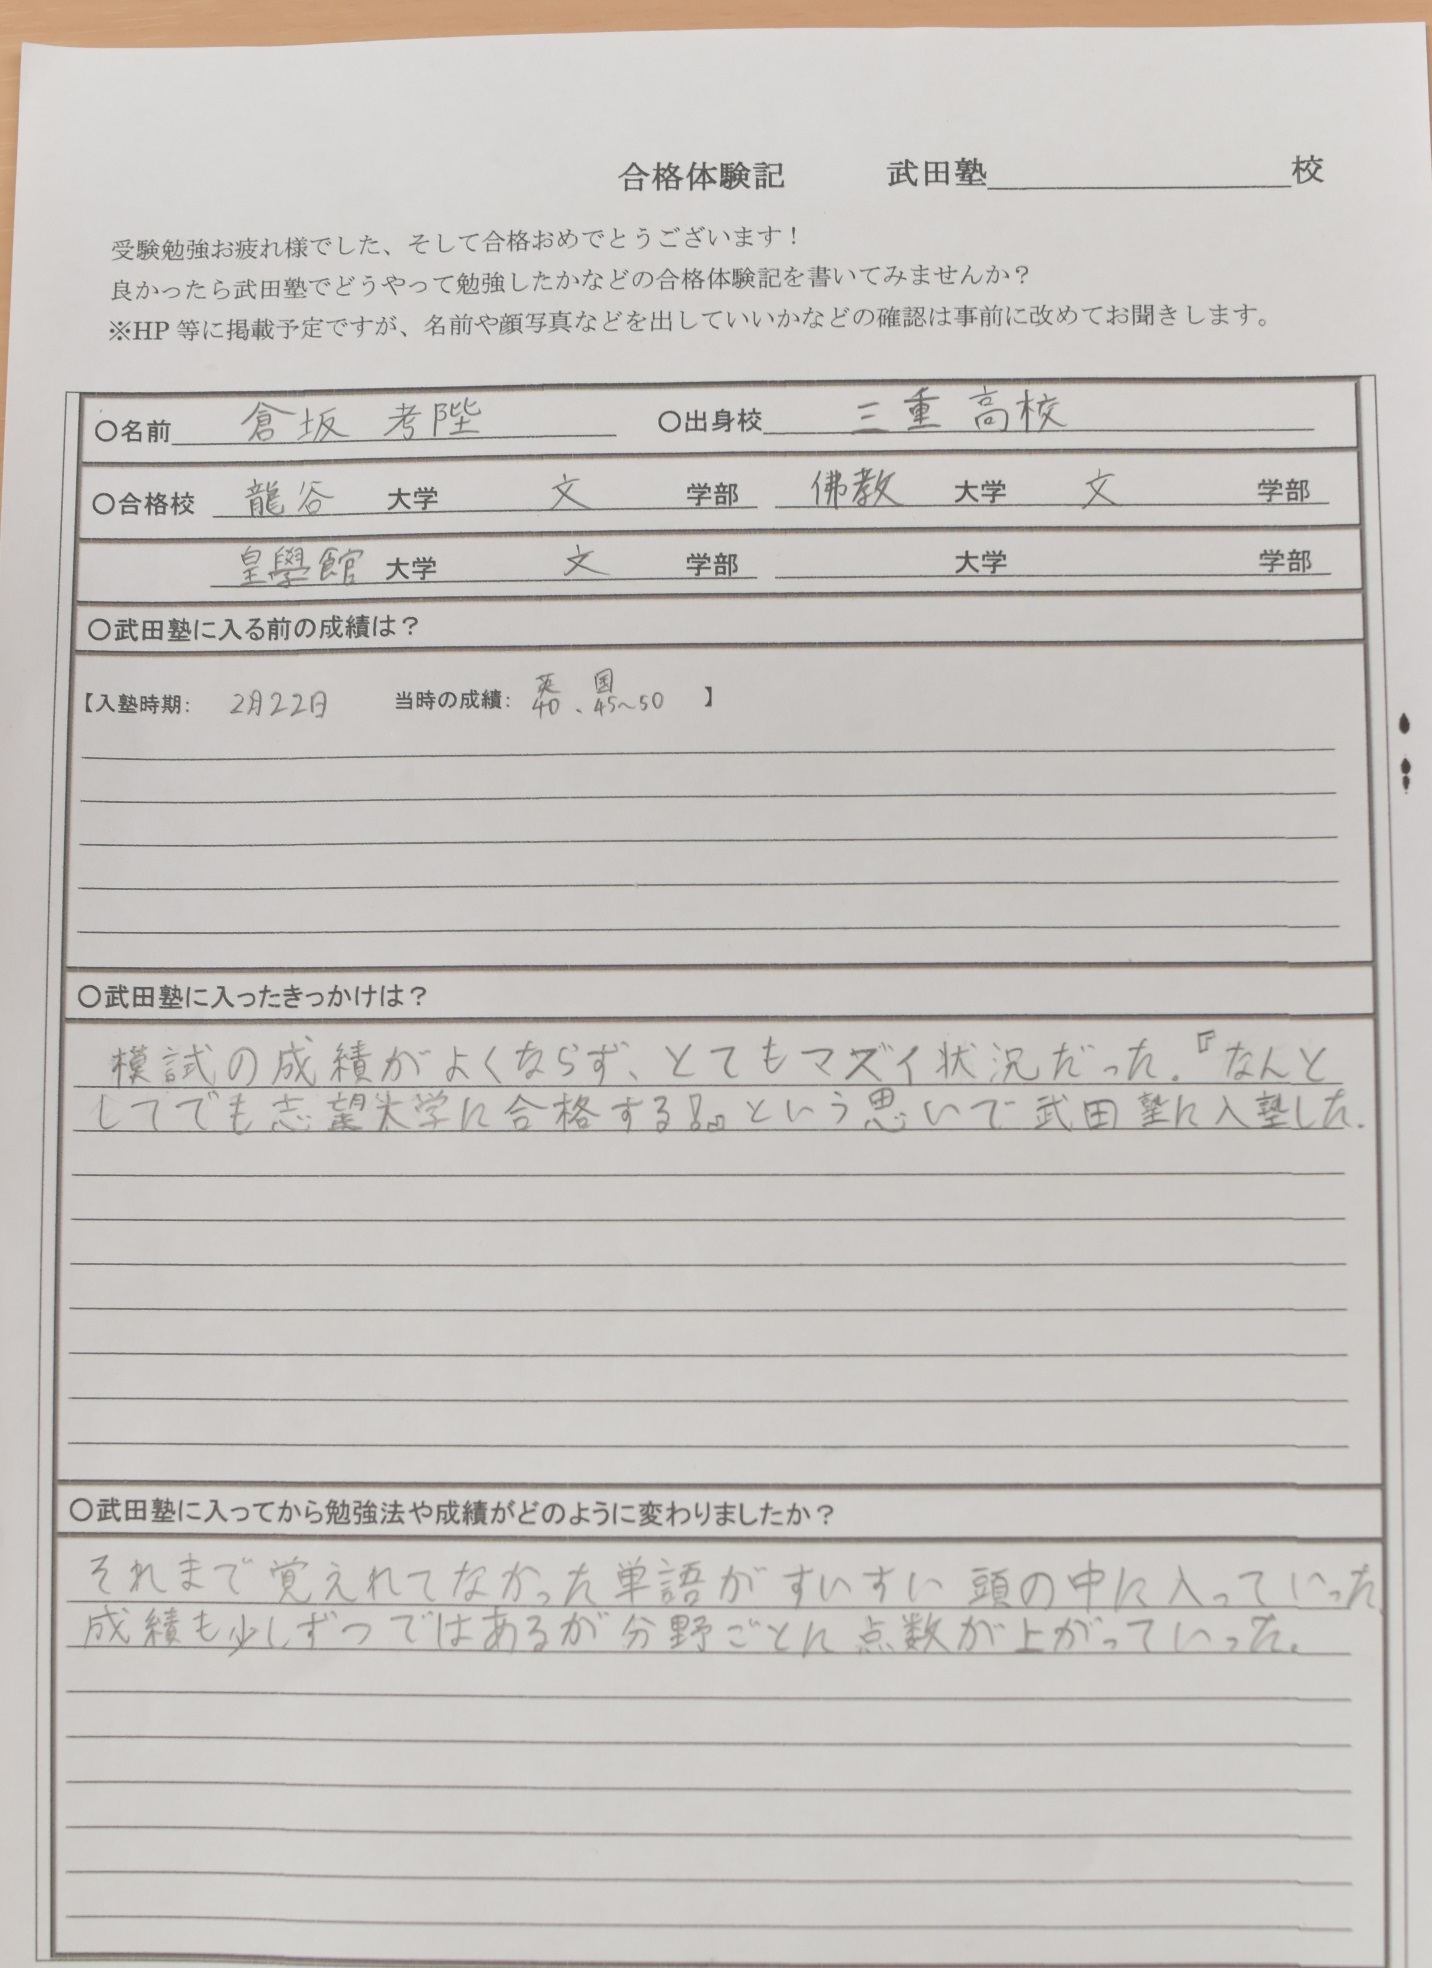 合格体験記 武田塾 校
受験勉強お疲れ様でした、そして合格おめでとうございます！
良かったら武田塾でどうやって勉強したかなどの合格体験記を書いてみませんか？
※HP 等に掲載予定ですが、名前や顔写真などを出していいかなどの確認は事前に改めてお聞きします。
〇名前 倉坂 考陛 〇出身校 三重 高校
〇合格校 龍谷 大学 文 学部 佛教 大学 文 学部
皇學館 大学 文 学部 大学 学部
〇武田塾に入る前の成績は？
英 国
【入塾時期： 2月22日 当時の成績： 40 、45～50 】
〇武田塾に入ったきっかけは？
模試の成績がよくならず、とてもマズイ状況だった。『なんと
してでも志望大学に合格する！』という思いで武田塾に入塾した。
〇武田塾に入ってから勉強法や成績がどのように変わりましたか？
それまで覚えれてなかった単語がすいすい頭の中に入っていった。
成績も少しずつではあるが分野ごとに点数が上がっていった。